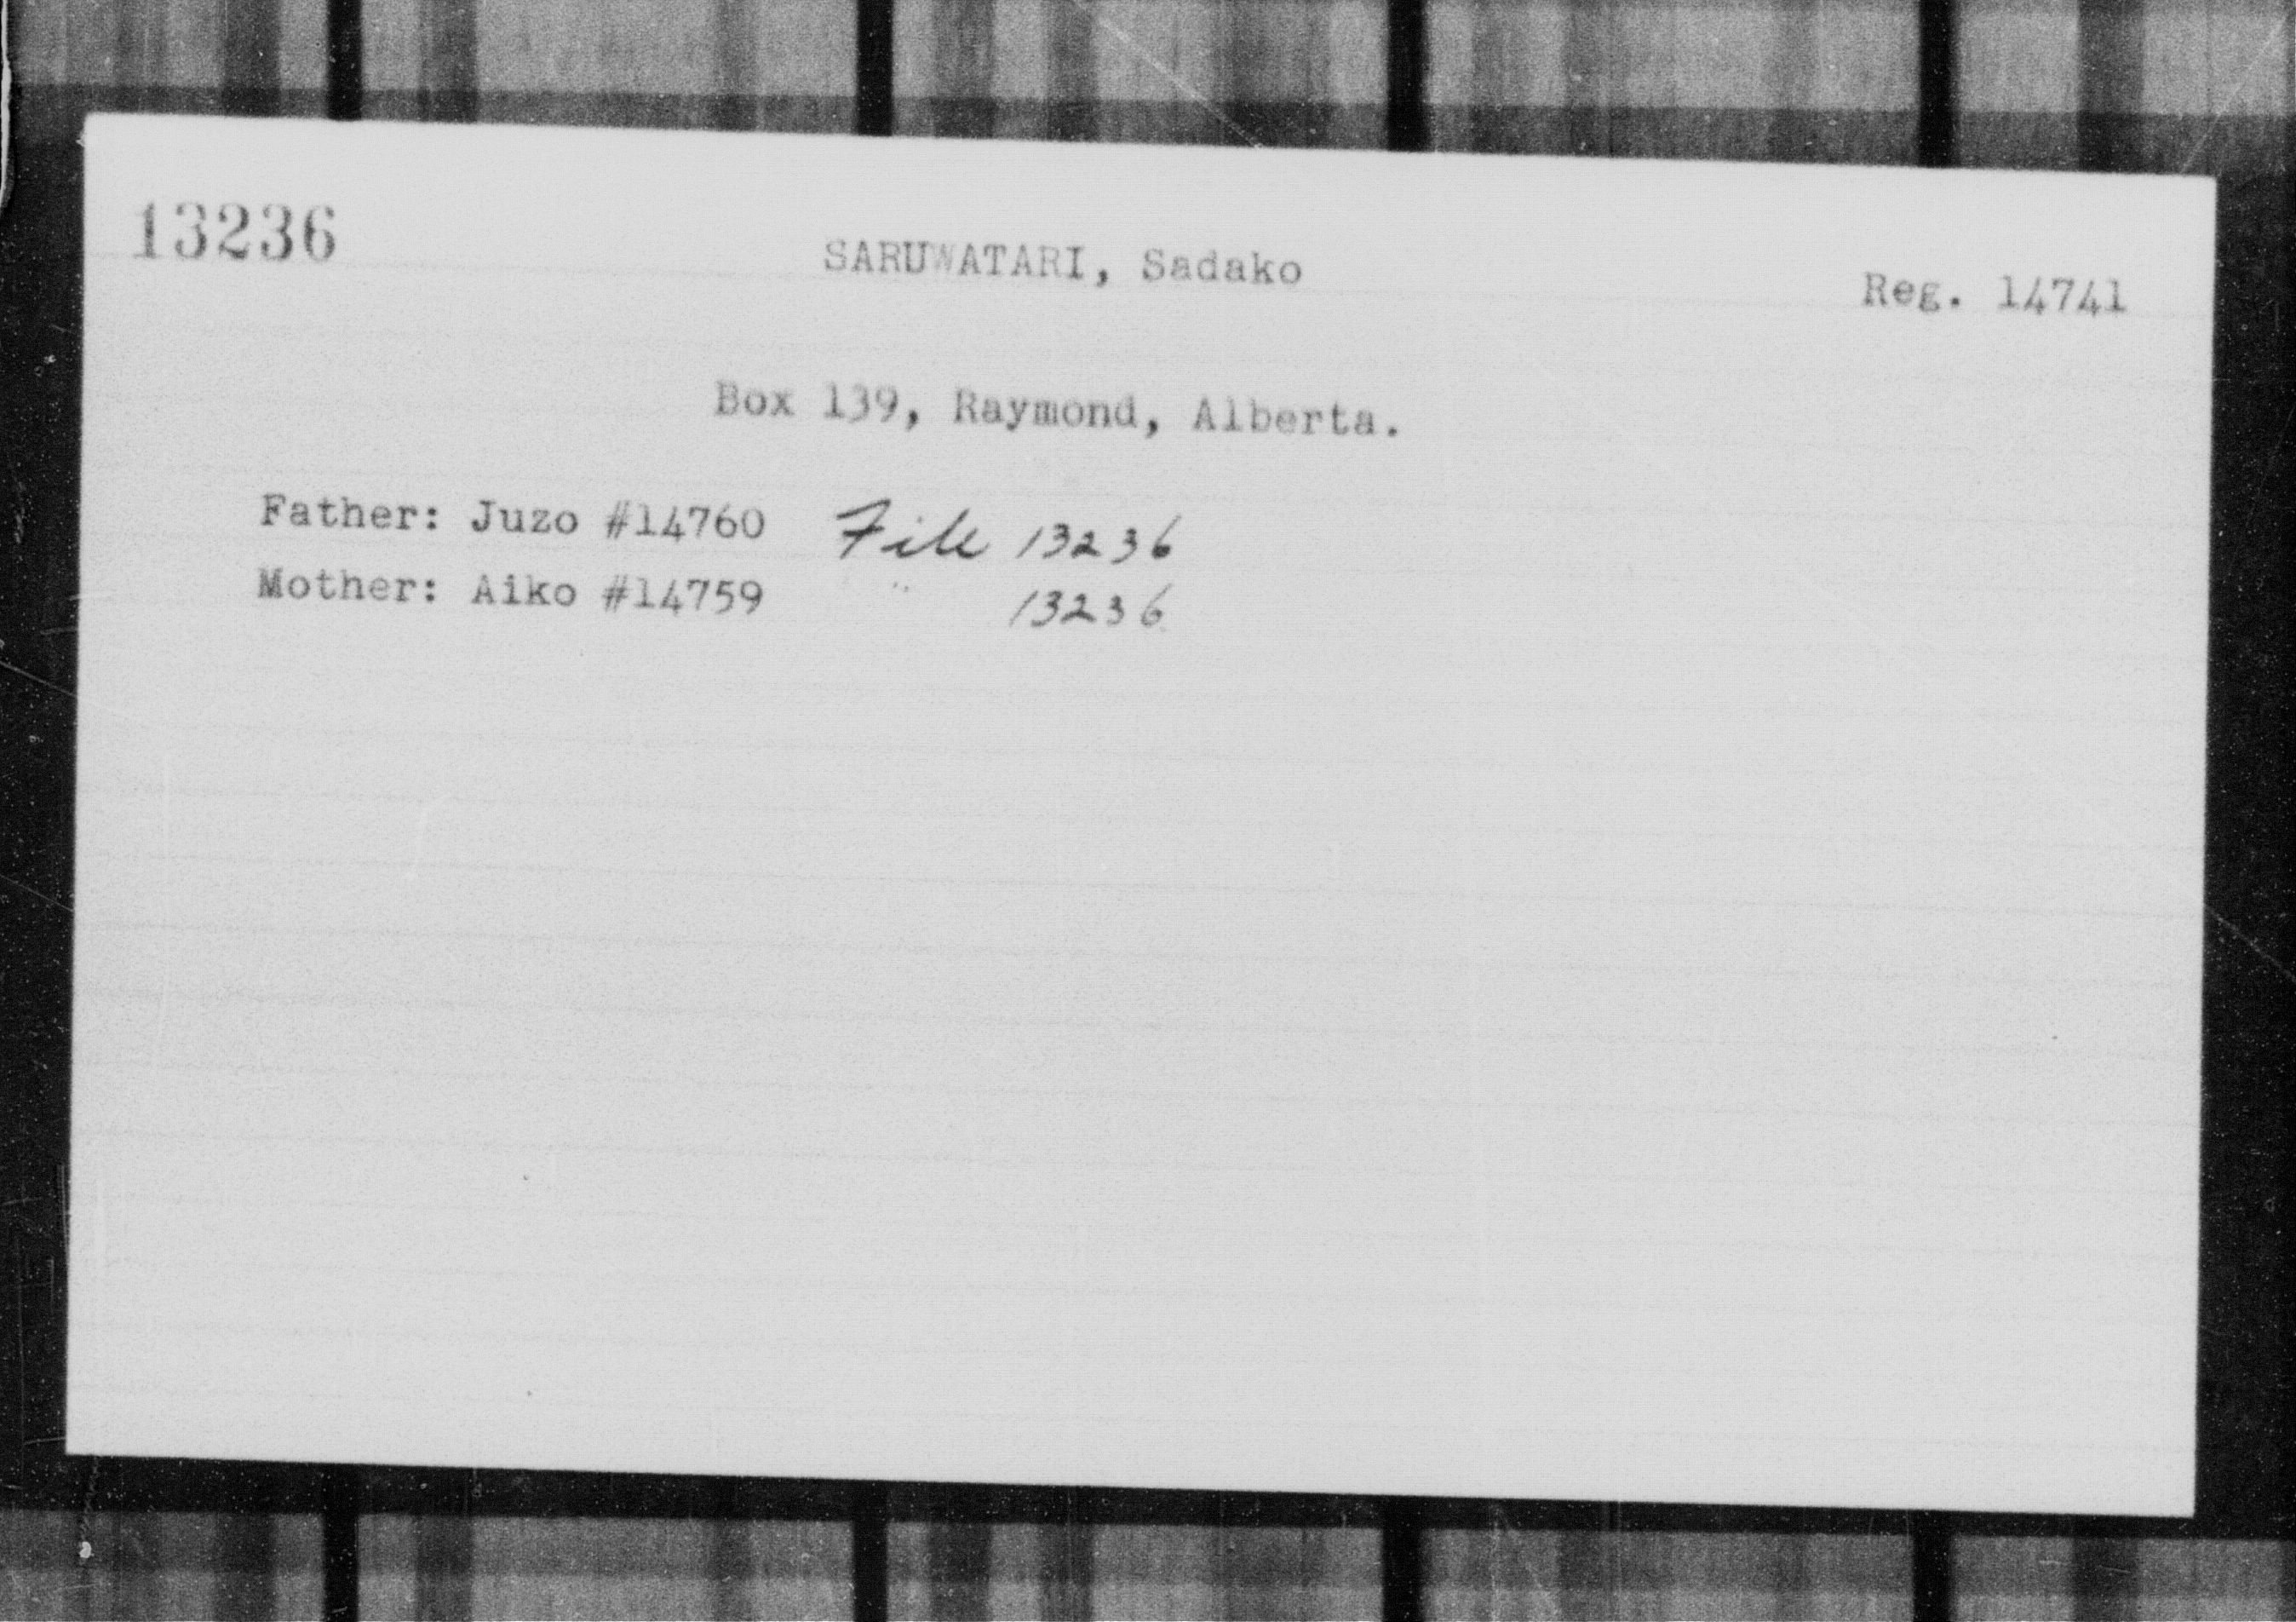 13236
SARUWATARI, Sadako
Reg. 14741
Box 139, Raymond, Alberta.
Father: Juzo #14760 File 13236
Mother: Aiko #14759 " 13236